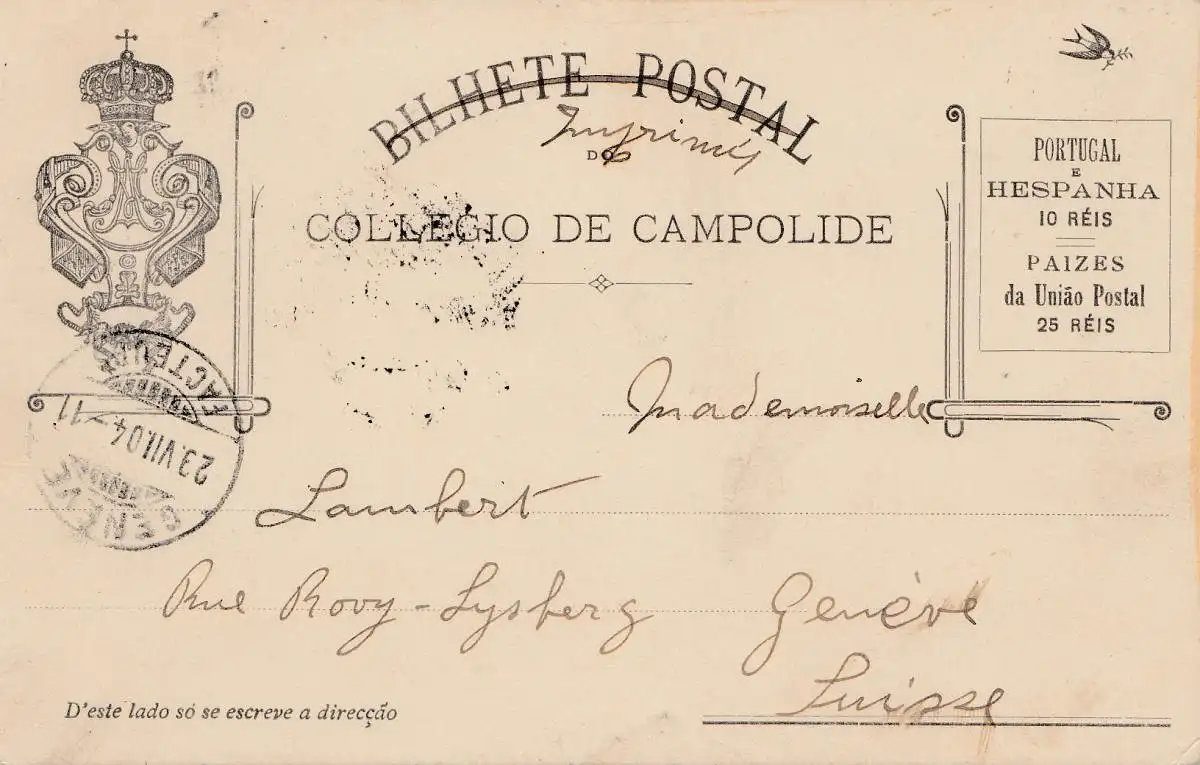 BILHETE POSTAL
Imprimés
DO
COLLEGIO DE CAMPOLIDE
PORTUGAL
E
HESPANHA
10 RÉIS
PAIZES
da União Postal
25 RÉIS
FACTEURS
23.VII.04-11
GENÈVE
Mademoiselle
Lambert
Rue Rovy-Lysberg Genève
Suisse
D'este lado só se escreve a direcção